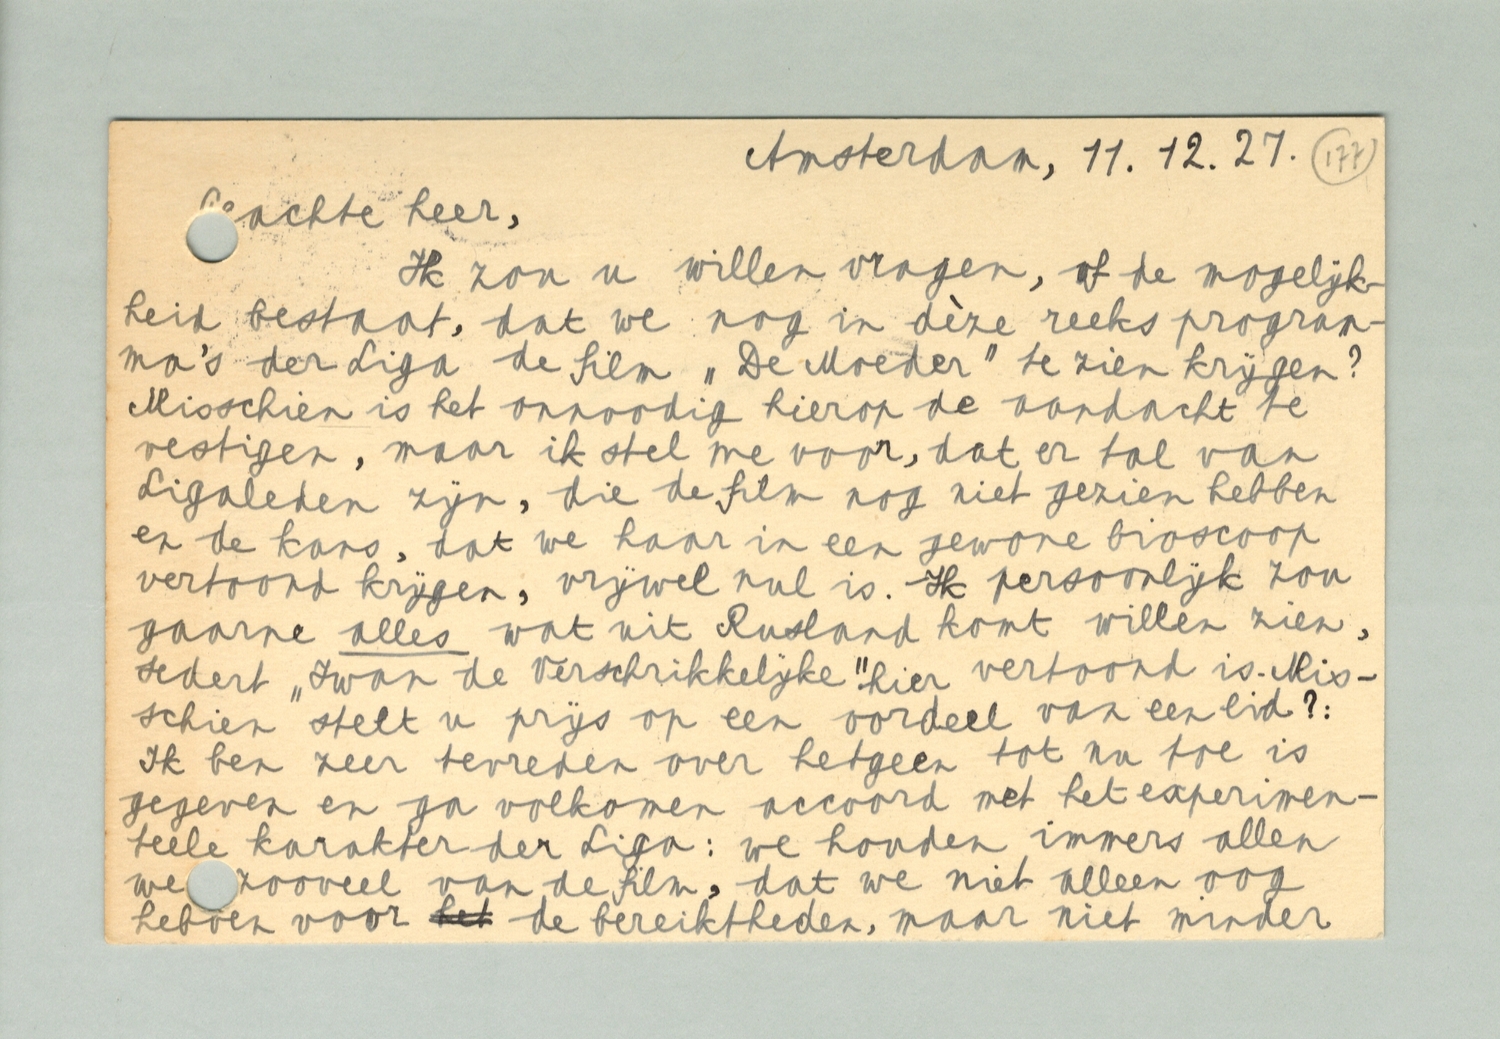 Amsterdam, 11. 12. 27. 177
Geachte heer,
Ik zou u willen vragen, of de mogelijk-
heid bestaat, dat we nog in dèze reeks program-
ma's der Liga de film „De Moeder" te zien krijgen?
Misschien is het onnoodig hierop de aandacht te
vestigen, maar ik stel me voor, dat er tal van
Ligaleden zijn, die de film nog niet gezien hebben
en de kans, dat we haar in een gewone bioscoop
vertoond krijgen, vrijwel nul is. Ik persoonlijk zou
gaarne alles wat uit Rusland komt willen zien,
sedert „Iwan de Verschrikkelijke" hier vertoond is. Mis-
schien stelt u prijs op een oordeel van een lid?:
Ik ben zeer tevreden over hetgeen tot nu toe is
gegeven en ga volkomen accoord met het experimen-
teele karakter der Liga: we houden immers allen
we zooveel van de film, dat we niet alleen oog
hebben voor het de bereiktheden, maar niet minder